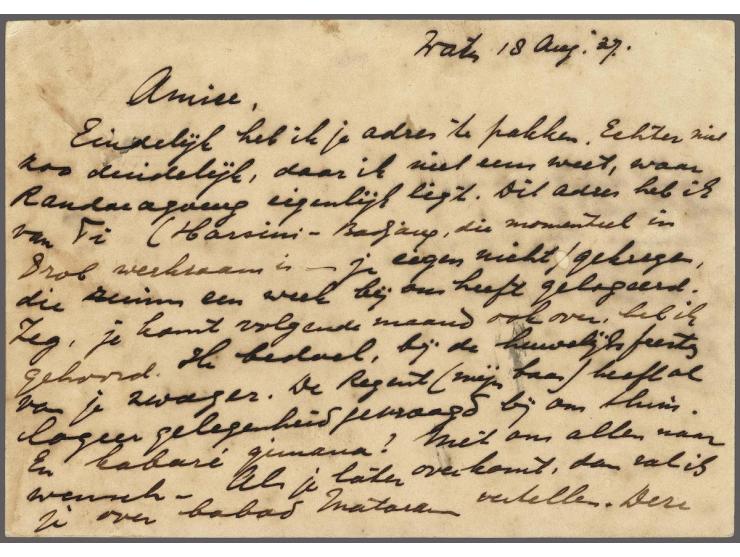 Wates 18 Aug. '37.
Amice,
Eindelijk heb ik je adres te pakken. Echter niet
zoo duidelijk, daar ik niet eens weet, waar
Randoeagoeng eigenlijk ligt. Dit adres heb ik
van Ti (Harsini - Badjang, die momenteel in
Brob. werkzaam is — je eigen nicht) gekregen,
die ruim een week bij ons heeft gelogeerd.
Zeg, je komt volgende maand ook over, heb ik
gehoord. Ik bedoel, bij de huwelijksfeesten
van je zwager. De Regent (mijn baas) heeft al
logeer gelegenheid gevraagd bij ons thuis.
En kabaré gimana? Met ons allen naar
wensch — Als je later overkomt, dan zal ik
je over babad Mataram vertellen. Deze